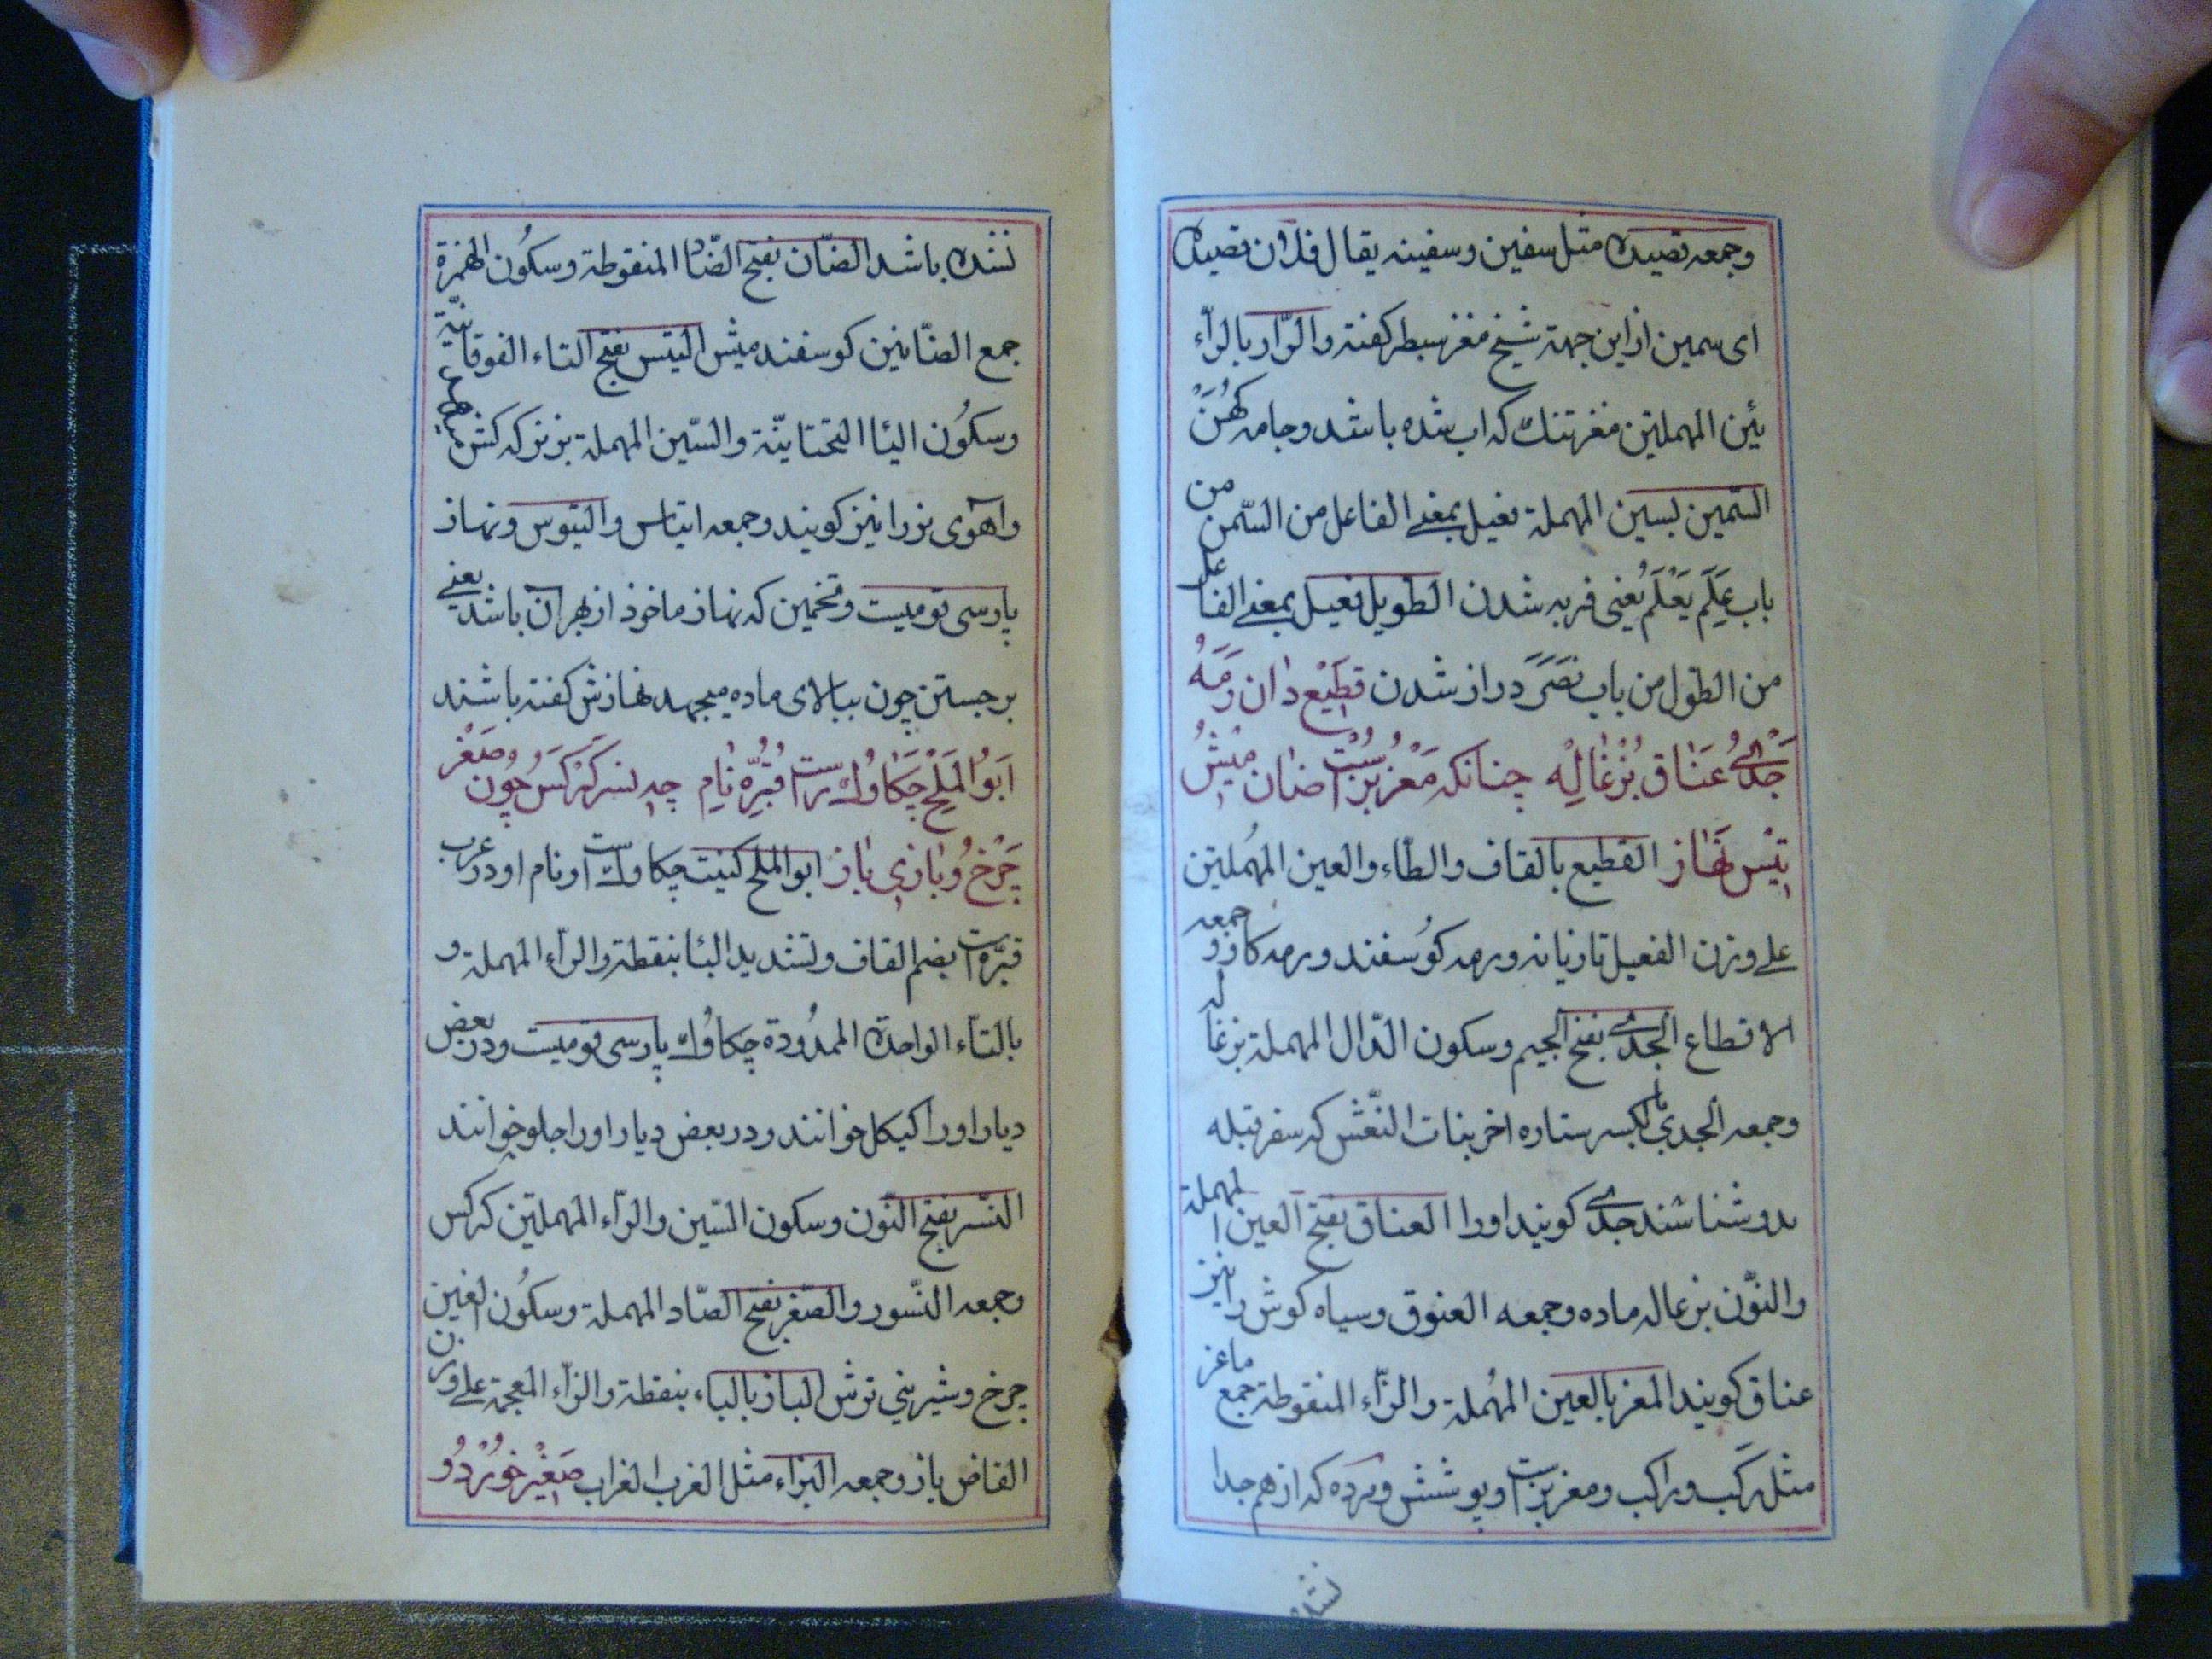 وجمعه قصیده مثل سفین وسفینه یقال فلان قصیده
ای سمین از این جهة شیخ مغز سطبر کفته والرّار بالرّاء
ئین المهملتین مغز تنك که اب شده باشد وجامه کهن
السّمین بسین المهملة فعیل بمعنے الفاعل من السّمن من
باب عَلِمَ یَعْلَمُ یعنی فربه شدن الطویل فعیل بمعنے الفاعل
من الطّول من باب نَصَرَ دراز شدن قطیْع دان رَمَهُ
جَدْیُ عَنَاق بُزْغَالِه چنانکه مَعْز بُزست ضان میْشُ
تیْس نَهَاز القطیع بالقاف والطّاء والعین المهُملتین
علے وزن الفعیل تازیانه ورمه کوُسفند ورمه کاو وجمعه
الاقطاع الجدے بفتح الجیم وسکون الدّال المهملة بزغاله
وجمعه الجدي بالکسر ستاره اخر بنات النّعش که سفر قبله
بدو شناسند جدے کویند اورا العناق بفتح العین المهملة
والنّون بزغاله ماده وجمعه العنوق وسیاه کوش را نیز
عناق کویند المعز بالعین المهُملة والزّاء المنقوطة جمع ماعز
مثل رَکب وراکب ومعز بزست وپوشش وپرده که از هم جدا
نشده
نشده باشد الضّان بفتح الضّا المنقوطة وسکون الهمزة
جمع الضّانین کوسفند میش التیس بفتح التاء الفوقانیّة
وسکوُن الیٔا التحتانیّة والسّین المهملة بز نر که کشن میجهد
واهوی نر را نیز کویند وجمعه اتیاس والتیوس ونهاز
پارسی قومیست وتخمین که نهاز ماخوذ از بهر ان باشد یعنے
برجستن چون ببالای ماده میجهد نهازش کفته باشند
اَبوُ المَلْحِ چَکَاوُك رست قُبَّرِه نَامِ چه نسر کَرْکَسُ چُون وصَغْر
چَرْخُ وبَازی باز ابو الملح کنیت چکاوك ست او نام او در عرب
قبّره ست بضم القاف وتشدید البٔا بنقطة والرّاء المهملة و
بالتاء الواحدة الممدُودة چکاوُك پارسی قومیست ودر بعض
دیار اورا کیکل خوانند ودر بعض دیار اورا جلو خوانند
النّسر بفتح النّون وسکون السّین والرّاء المهملتین کرکس
وجمعه النّسور والصّغر بفتح الصّاد المهملة وسکوُن الغین
چرخ وشیرینی ترش الباز بالباء بنقطة والزّاء المعجمة علے وزن
القاض باز وجمعه البزاء مثل الغرب الغراب صَغیْر خوُرْدُ وُ